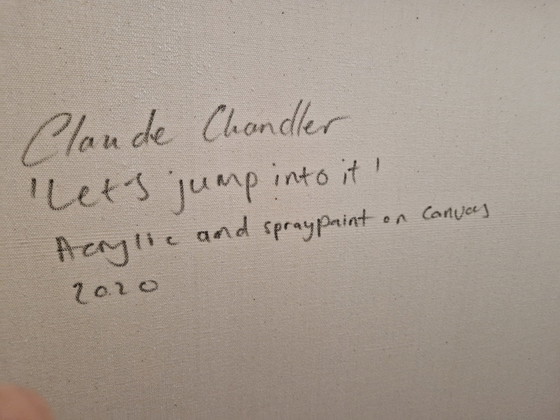 Claude Chandler
'Let's jump into it'
Acrylic and spraypaint on canvas
2020